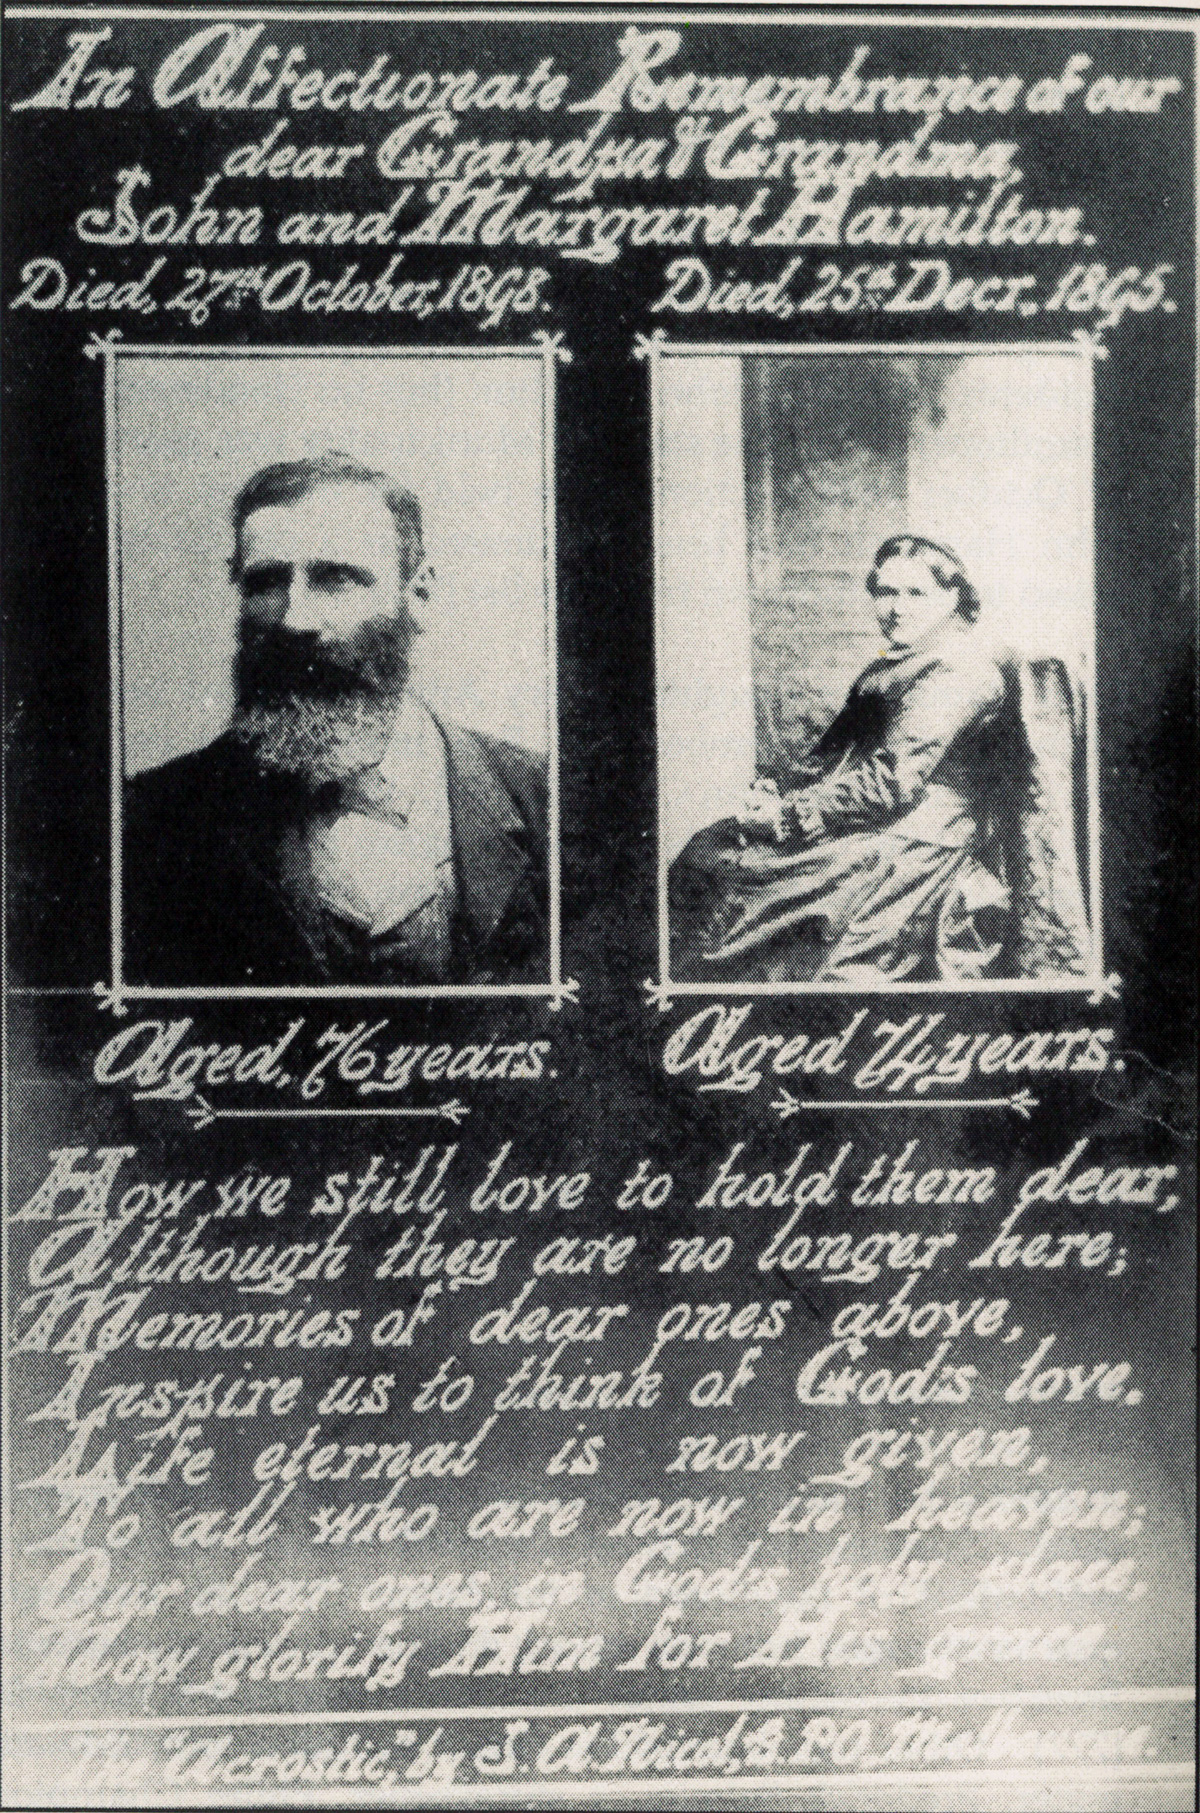 In Affectionate Remembrance of our
dear Grandpa & Grandma,
John and Margaret Hamilton.
Died, 27th October, 1898.
Died, 25th Decr., 1895.
Aged, 76 years.
Aged 74 years.
How we still love to hold them dear,
Although they are no longer here;
Memories of dear ones above,
Inspire us to think of God's love.
Life eternal is now given,
To all who are now in heaven;
Our dear ones, in God's holy place,
Now glorify Him for His grace.
The "Acrostic," by J. A. Nicol, G.P.O. Melbourne.